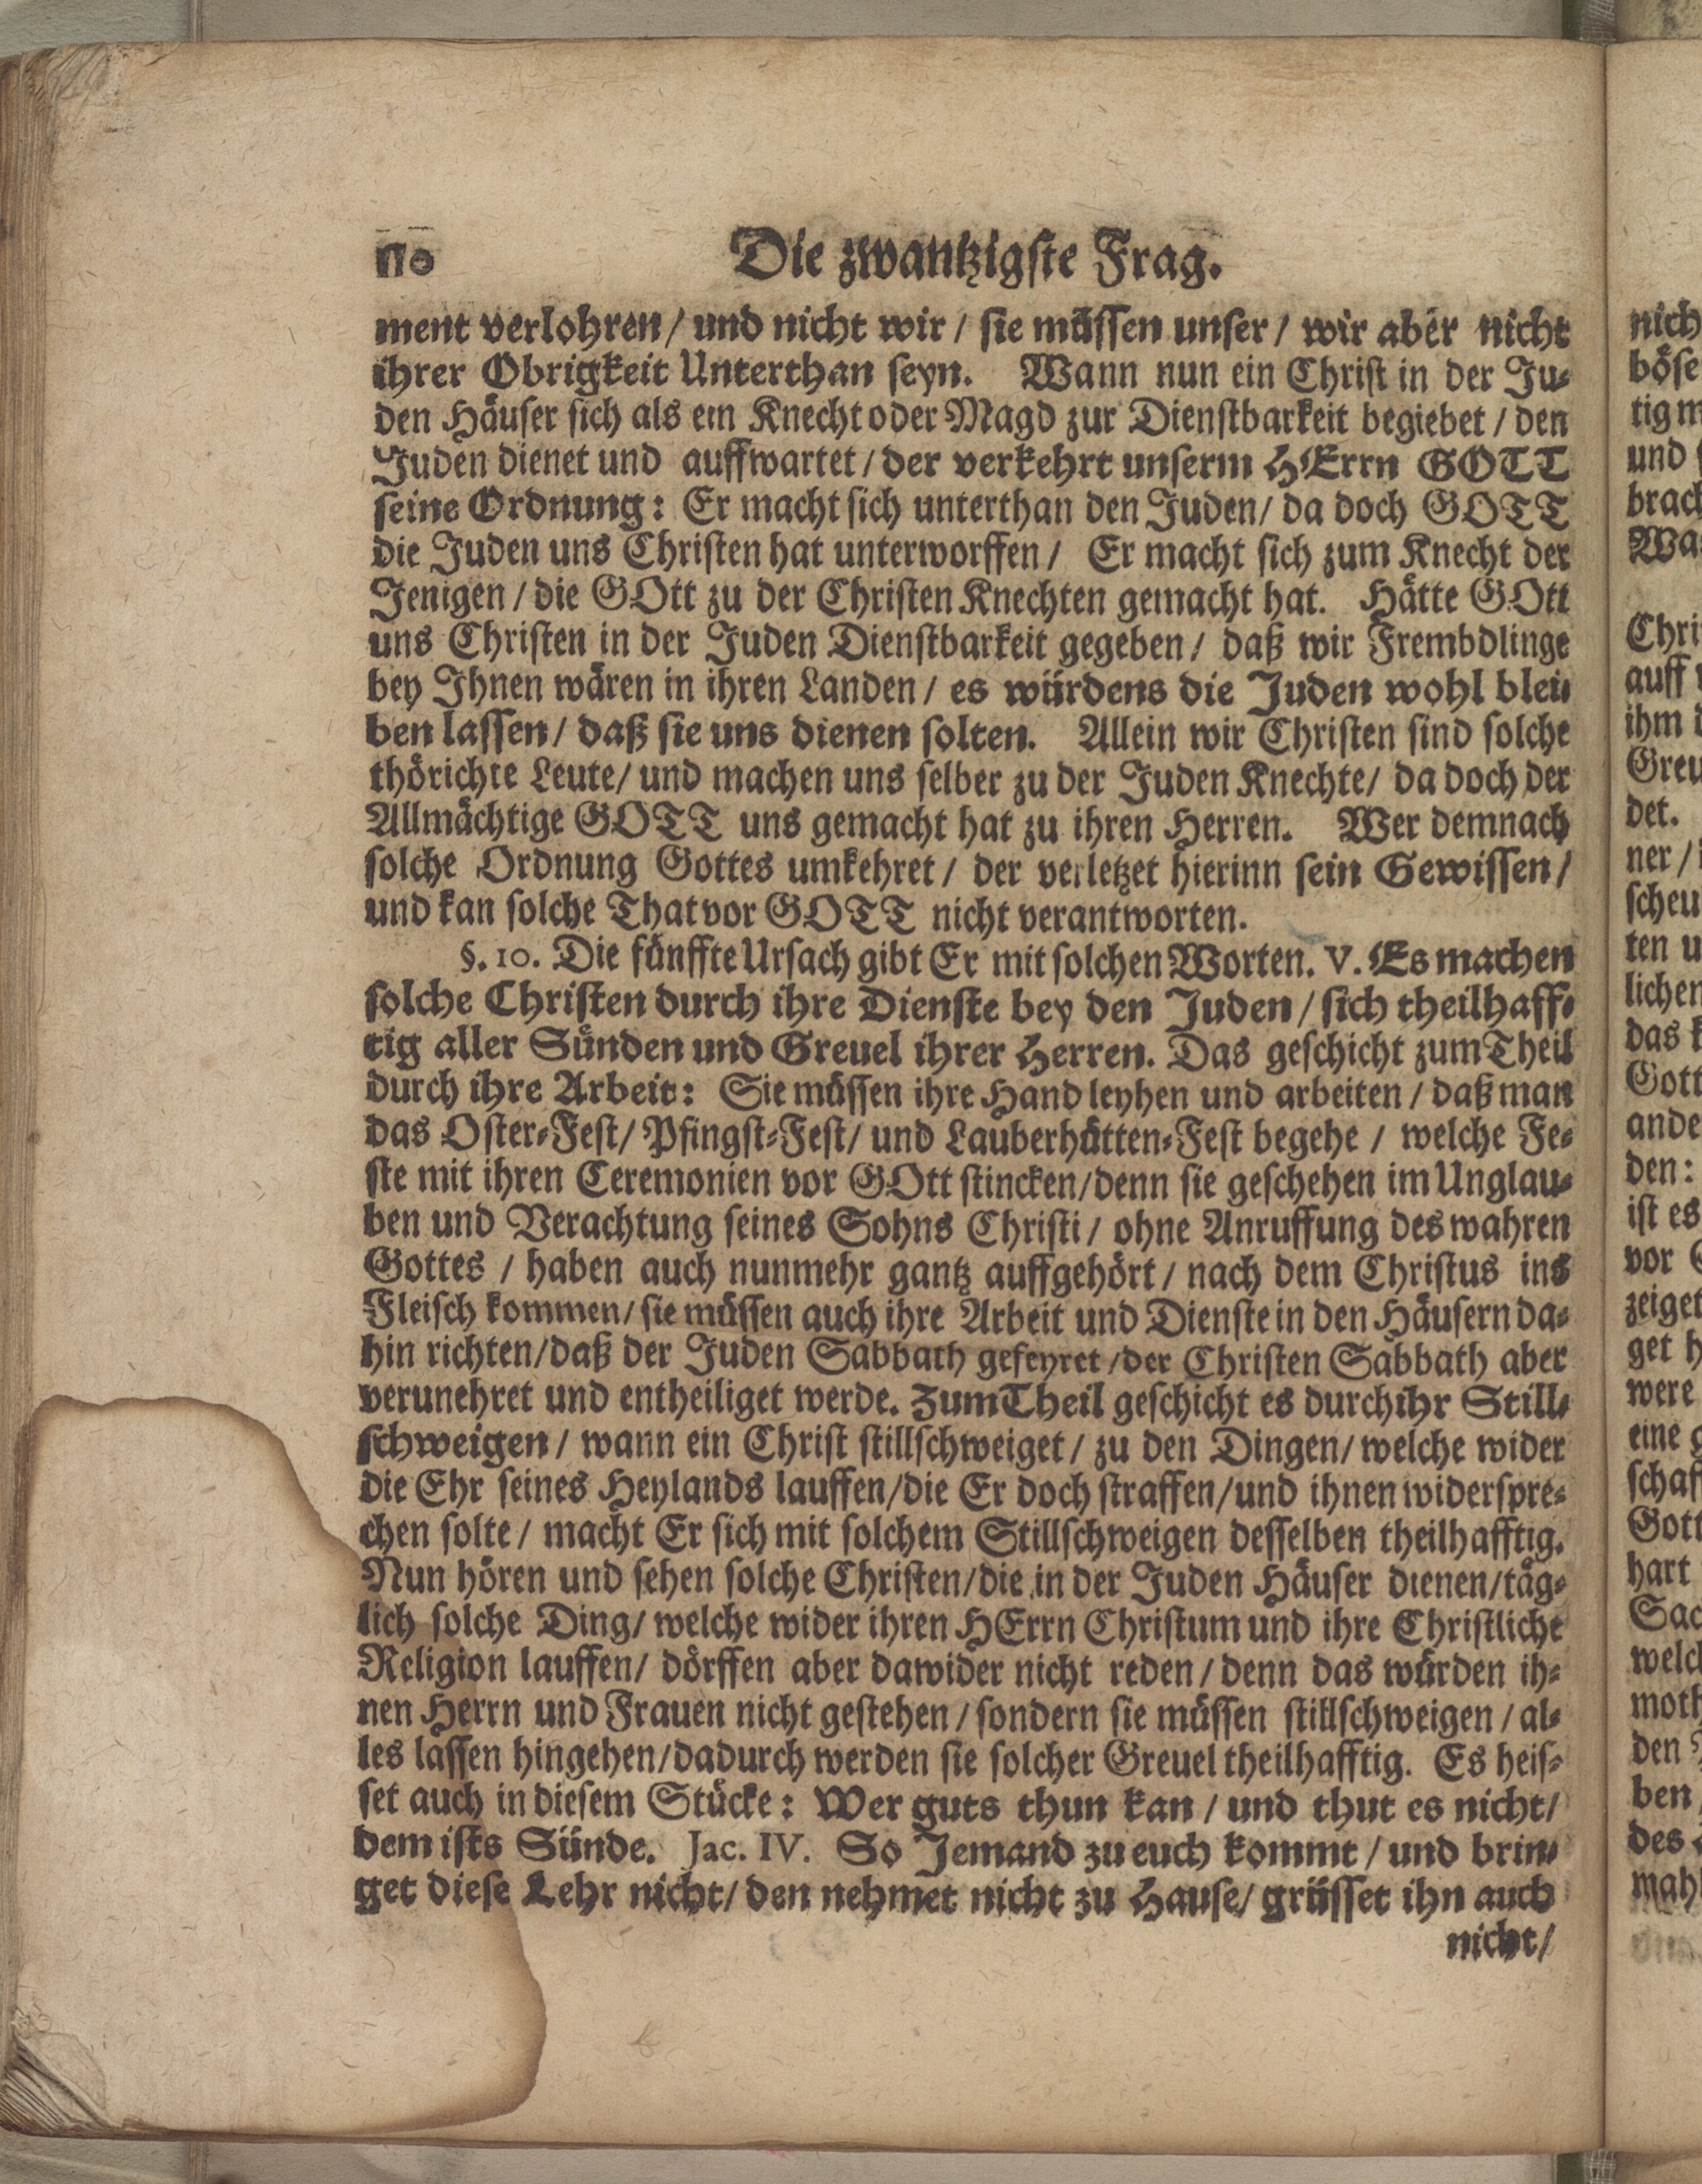 110 Die zwantzigste Frag.
ment verlohren/ und nicht wir / sie müssen unser / wir aber nicht
ihrer Obrigkeit Unterthan seyn. Wann nun ein Christ in der Ju-
den Häuser sich als ein Knecht oder Magd zur Dienstbarkeit begiebet / den
Juden dienet und auffwartet / der verkehrt unserm HErrn GOTT
seine Ordnung: Er macht sich unterthan den Juden/ da doch GOTT
die Juden uns Christen hat unterworffen / Er macht sich zum Knecht der
Jenigen / die GOtt zu der Christen Knechten gemacht hat. Hätte GOtt
uns Christen in der Juden Dienstbarkeit gegeben / daß wir Frembdlinge
bey Ihnen wären in ihren Landen / es würdens die Juden wohl blei-
ben lassen / daß sie uns dienen solten. Allein wir Christen sind solche
thörichte Leute/ und machen uns selber zu der Juden Knechte/ da doch der
Allmächtige GOTT uns gemacht hat zu ihren Herren. Wer demnach
solche Ordnung Gottes umkehret / der verletzet hierinn sein Gewissen /
und kan solche That vor GOTT nicht verantworten.
§. 10. Die fünffte Ursach gibt Er mit solchen Worten. V. Es machen
solche Christen durch ihre Dienste bey den Juden / sich theilhaff-
tig aller Sünden und Greuel ihrer Herren. Das geschicht zum Theil
durch ihre Arbeit: Sie müssen ihre Hand leyhen und arbeiten / daß man
das Oster-Fest/ Pfingst-Fest/ und Lauberhütten-Fest begehe / welche Fe-
ste mit ihren Ceremonien vor GOtt stincken/denn sie geschehen im Unglau-
ben und Verachtung seines Sohns Christi / ohne Anruffung des wahren
Gottes / haben auch nunmehr gantz auffgehört / nach dem Christus ins
Fleisch kommen/ sie müssen auch ihre Arbeit und Dienste in den Häusern da-
hin richten/daß der Juden Sabbath gefeyret /der Christen Sabbath aber
verunehret und entheiliget werde. Zum Theil geschicht es durch ihr Still-
schweigen / wann ein Christ stillschweiget / zu den Dingen/ welche wider
die Ehr seines Heylands lauffen/die Er doch straffen/und ihnen widerspre-
chen solte / macht Er sich mit solchem Stillschweigen desselben theilhafftig.
Nun hören und sehen solche Christen/die in der Juden Häuser dienen/täg-
lich solche Ding/ welche wider ihren HErrn Christum und ihre Christliche
Religion lauffen/ dörffen aber dawider nicht reden / denn das würden ih-
nen Herrn und Frauen nicht gestehen / sondern sie müssen stillschweigen / al-
les lassen hingehen/dadurch werden sie solcher Greuel theilhafftig. Es heis-
set auch in diesem Stücke: Wer guts thun kan / und thut es nicht/
dem ists Sünde. Jac. IV. So Jemand zu euch kommt / und brin-
get diese Lehr nicht/ den nehmet nicht zu Hause/ grüsset ihn auch
nicht/
nich
böse
tig m
und
brach
Wa
Chri
auff
ihm
Greu
det.
ner /
scheu
ten u
lichen
das
Gott
ande
den:
ist es
vor
zeiget
get h
were
eine
schaf
Gott
hart
Sac
welch
moth
den
ben
des
mah